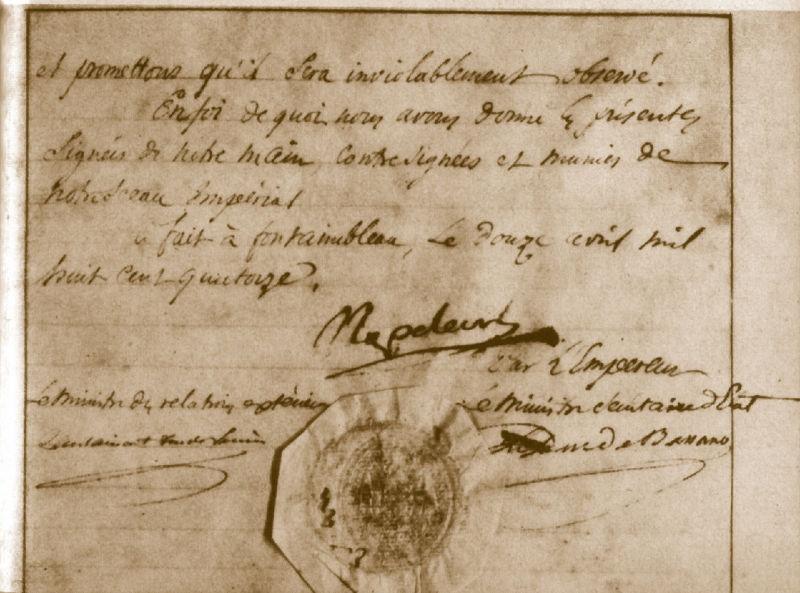 et promettons qu'il sera inviolablement observé.
En foi de quoi nous avons donné les présentes
signées de notre main, contresignées et munies de
notre sceau Impérial
fait à fontainebleau, le douze avril mil
huit cent quatorze.
Napoleon
Par l'Empereur
Le Ministre des relations extérieures
Le Ministre Secrétaire d'État
Duc de Bassano